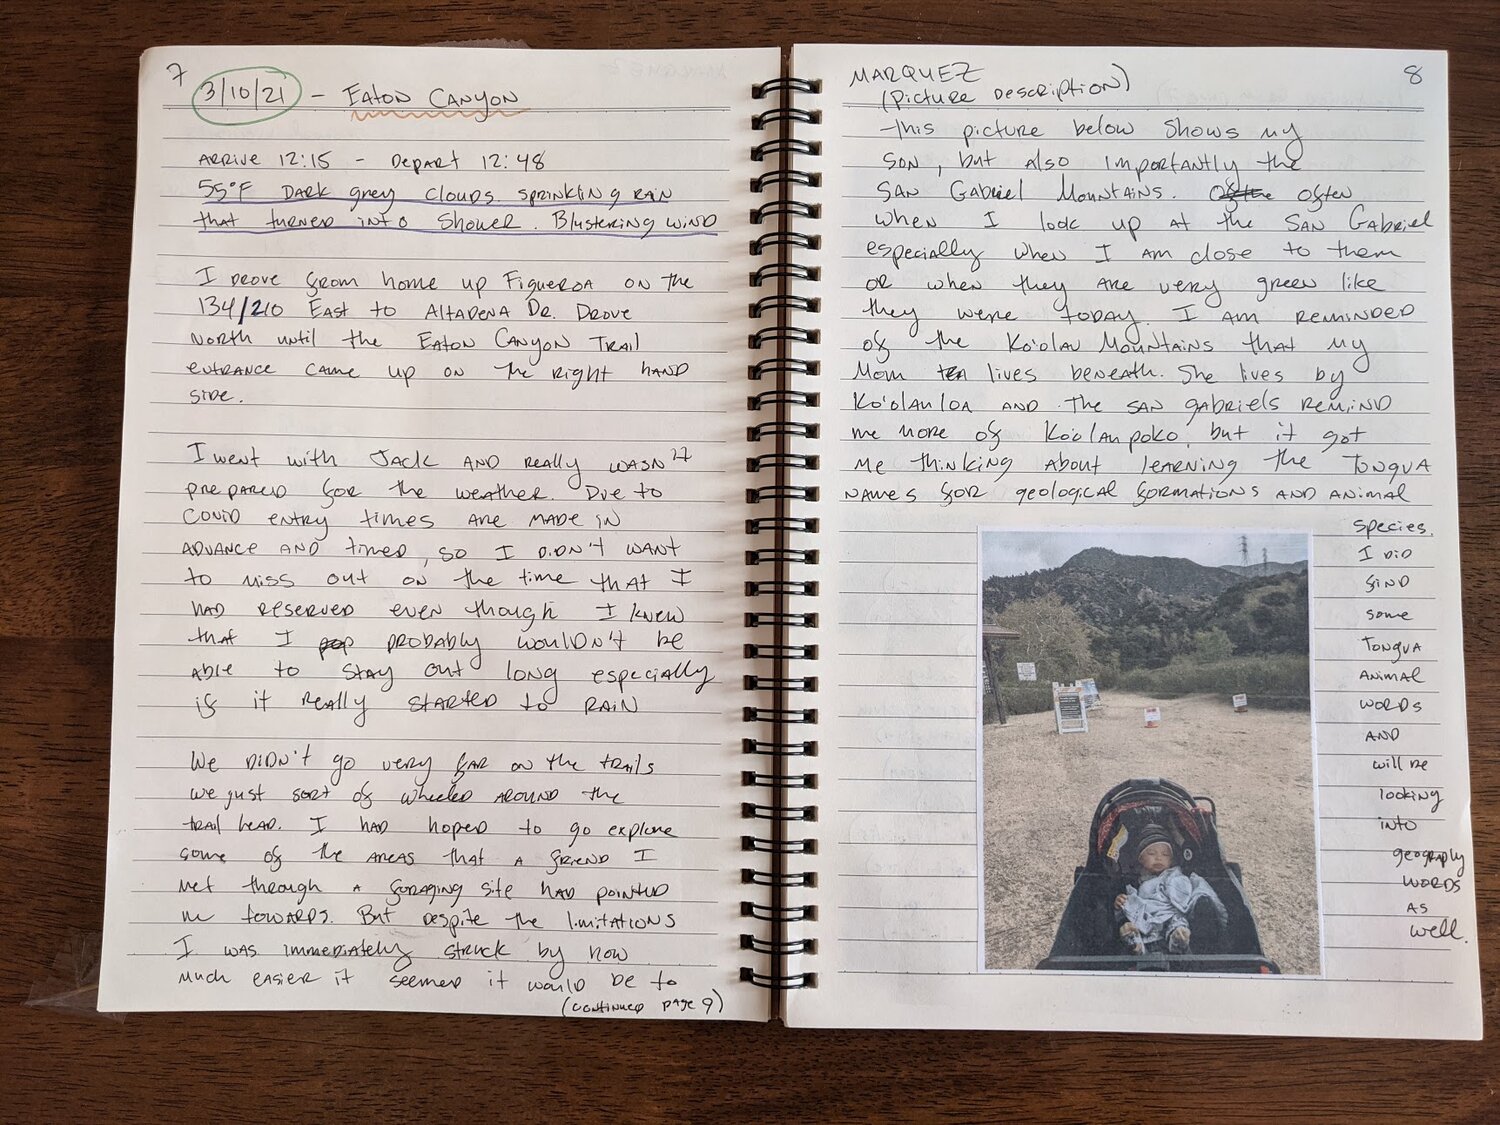 7
3/10/21 - EATON CANYON
ARRIVE 12:15 - DEPART 12:48
55°F DARK grey clouds. sprinkling RAIN
that turned into Shower. Blustering wind
I DROVE from home up Figueroa on the
134/210 East to Altadena Dr. Drove
North until the Eaton Canyon Trail
entrance came up on the right hand
side.
I went with Jack and really wasn't
prepared for the weather. Due to
Covid entry times are made in
advance and timed, so I didn't want
to miss out on the time that I
had reserved even though I knew
that I probably wouldn't be
able to stay out long especially
if it really started to rain
We didn't go very far on the trails
we just sort of wheeled around the
trail head. I had hoped to go explore
some of the areas that a friend I
met through a foraging site had pointed
me towards. But despite the limitations
I was immediately struck by how
much easier it seemed it would be to
(continued page 9)
8
MARQUEZ
(Picture Description)
This picture below shows my
son, but also importantly the
San Gabriel Mountains. often
when I look up at the San Gabriel
especially when I am close to them
or when they are very green like
they were today. I am reminded
of the Ko'olau Mountains that my
Mom lives beneath. She lives by
Ko'olauloa and the San Gabriels remind
me more of Ko'olaupoko, but it got
me thinking about learning the Tongva
names for geological formations and animal
species.
I did
find
some
Tongva
animal
words
and
will be
looking
into
geography
words
as
well.